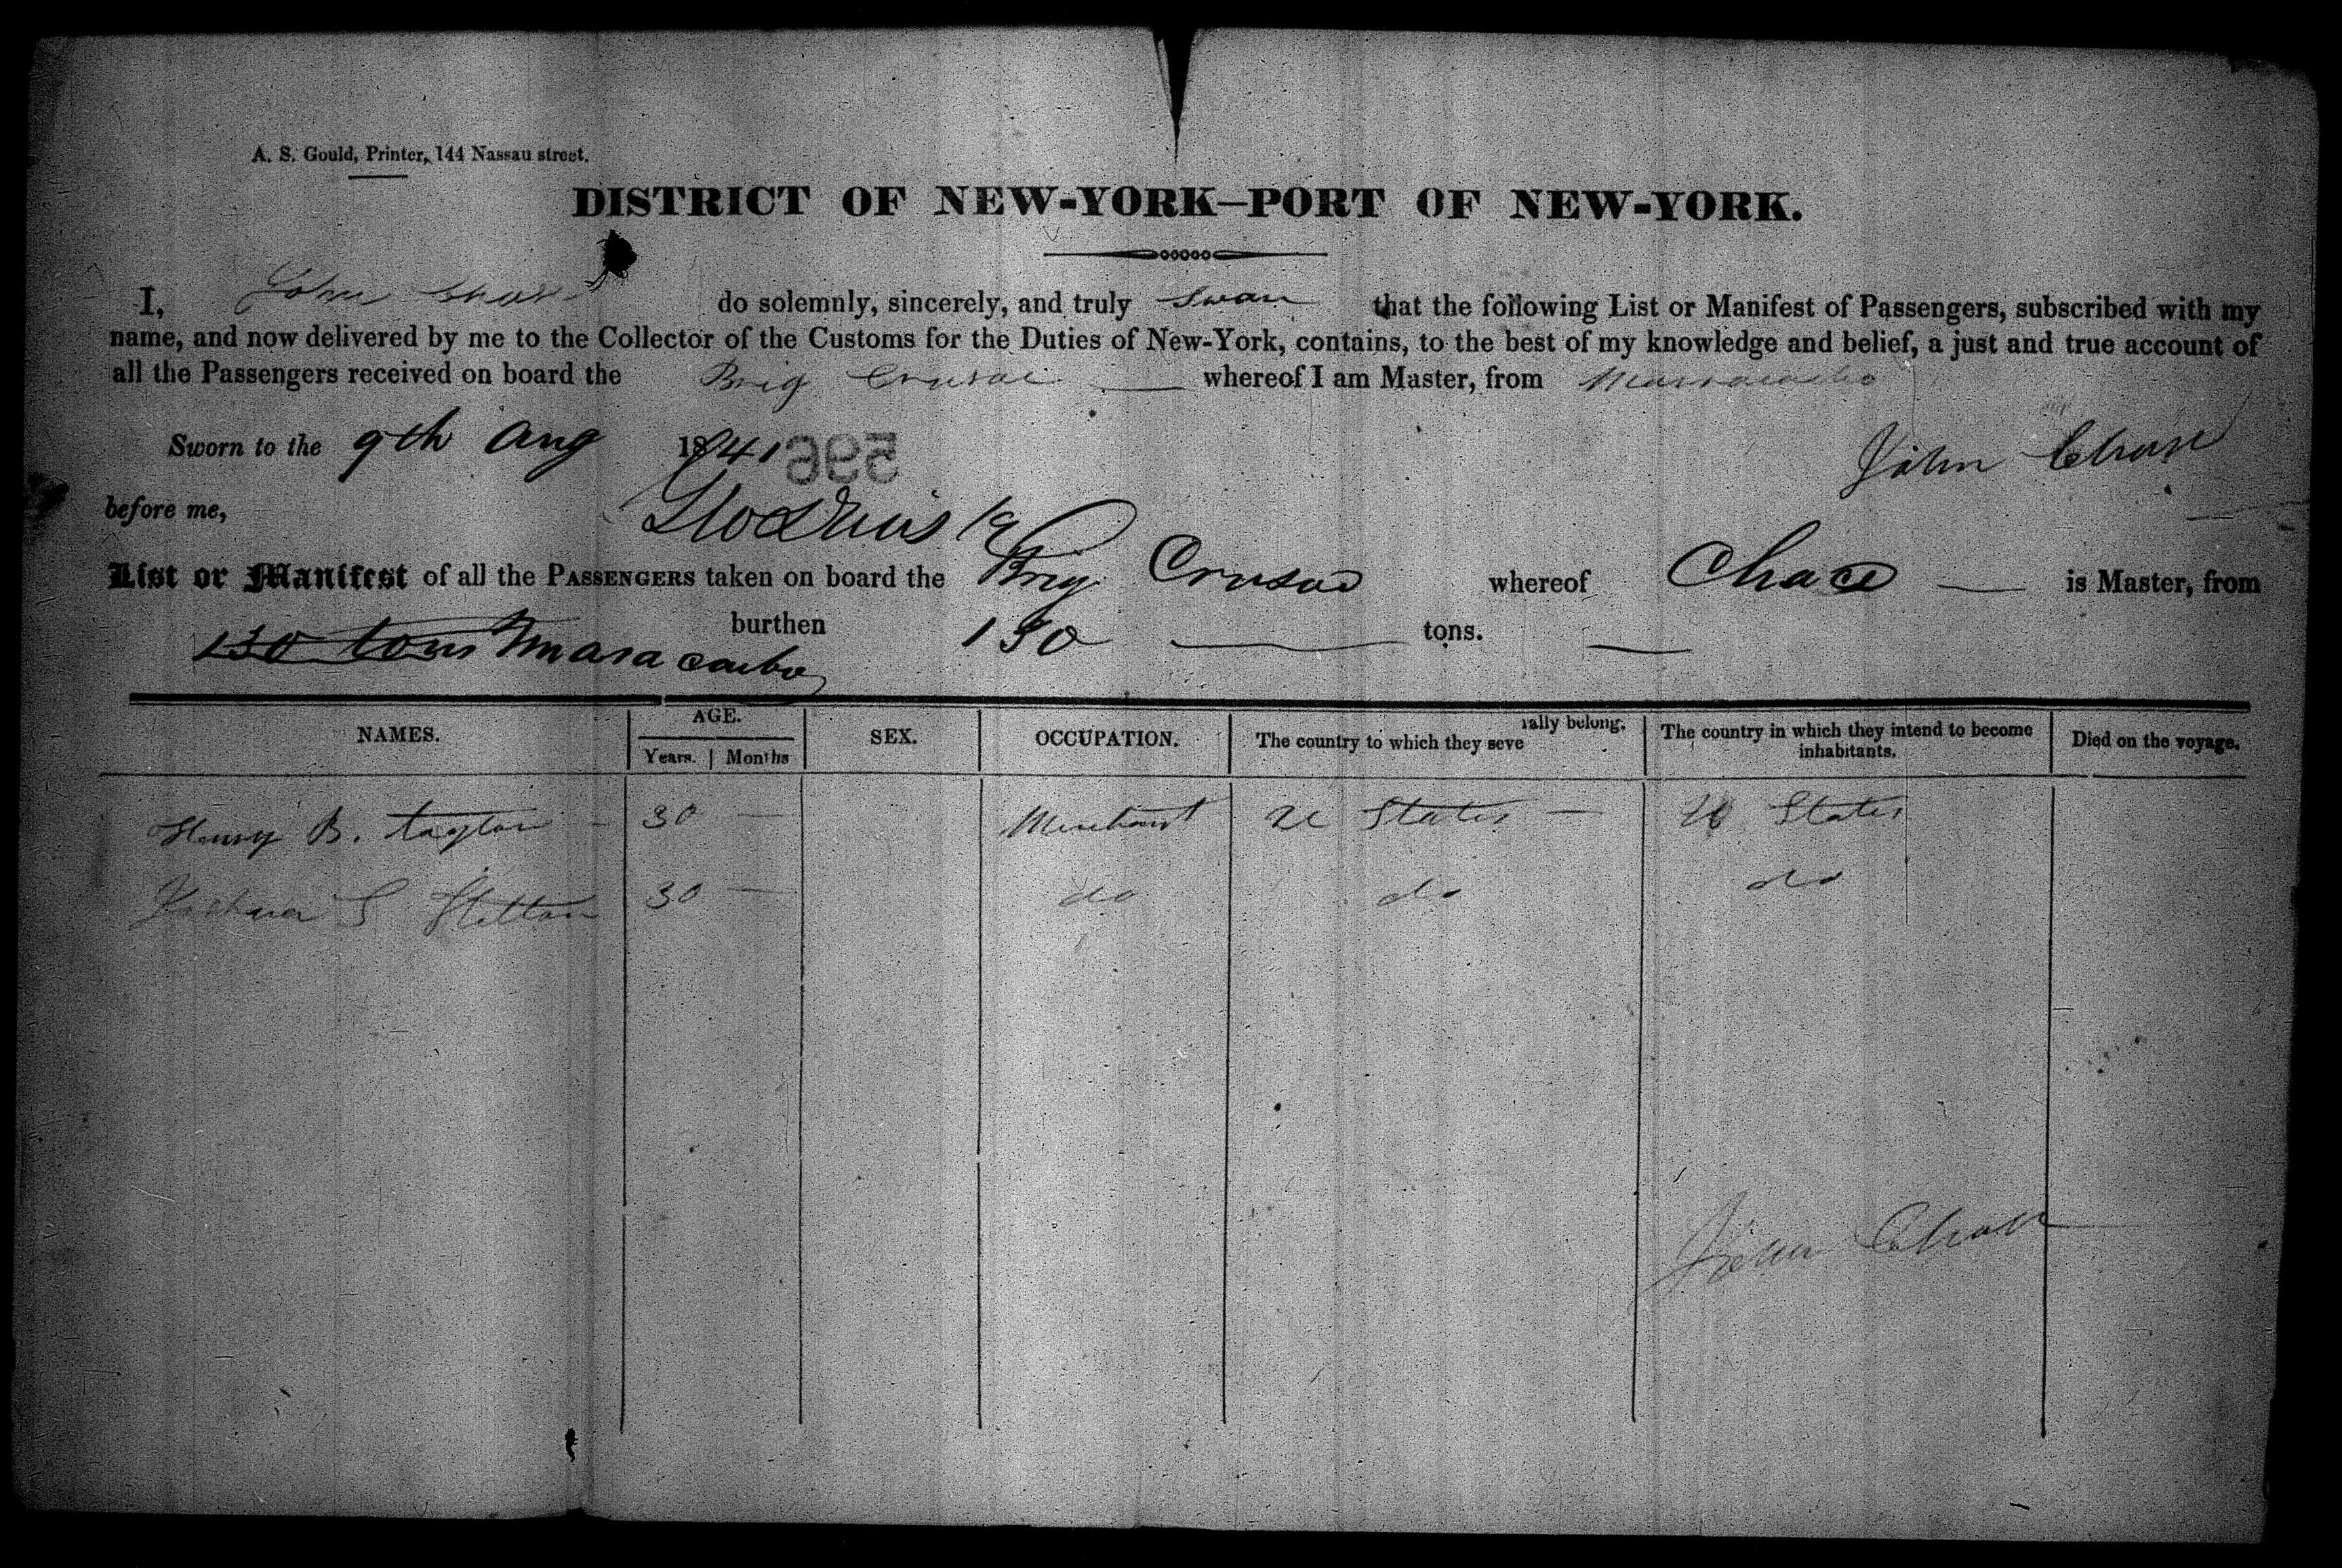 A. S. Gould, Printer, 144 Nassau street.
DISTRICT OF NEW-YORK—PORT OF NEW-YORK.
I, John Chase do solemnly, sincerely, and truly Swear that the following List or Manifest of Passengers, subscribed with my
name, and now delivered by me to the Collector of the Customs for the Duties of New-York, contains, to the best of my knowledge and belief, a just and true account of
all the Passengers received on board the Brig Crusoe whereof I am Master, from Maracaibo
Sworn to the 9th Aug 1841 596
John Chase
before me,
List or Manifest of all the PASSENGERS taken on board the Brig Crusoe whereof Chace is Master, from
130 tons Maracaibo burthen 130 tons.
NAMES. AGE. SEX. OCCUPATION. The country to which they severally belong. The country in which they intend to become inhabitants. Died on the voyage.
Years. Months
Henry B. Taylor 30 — Merchant U States — U States
Joshua S Stetson 30 — do do do
John Chase